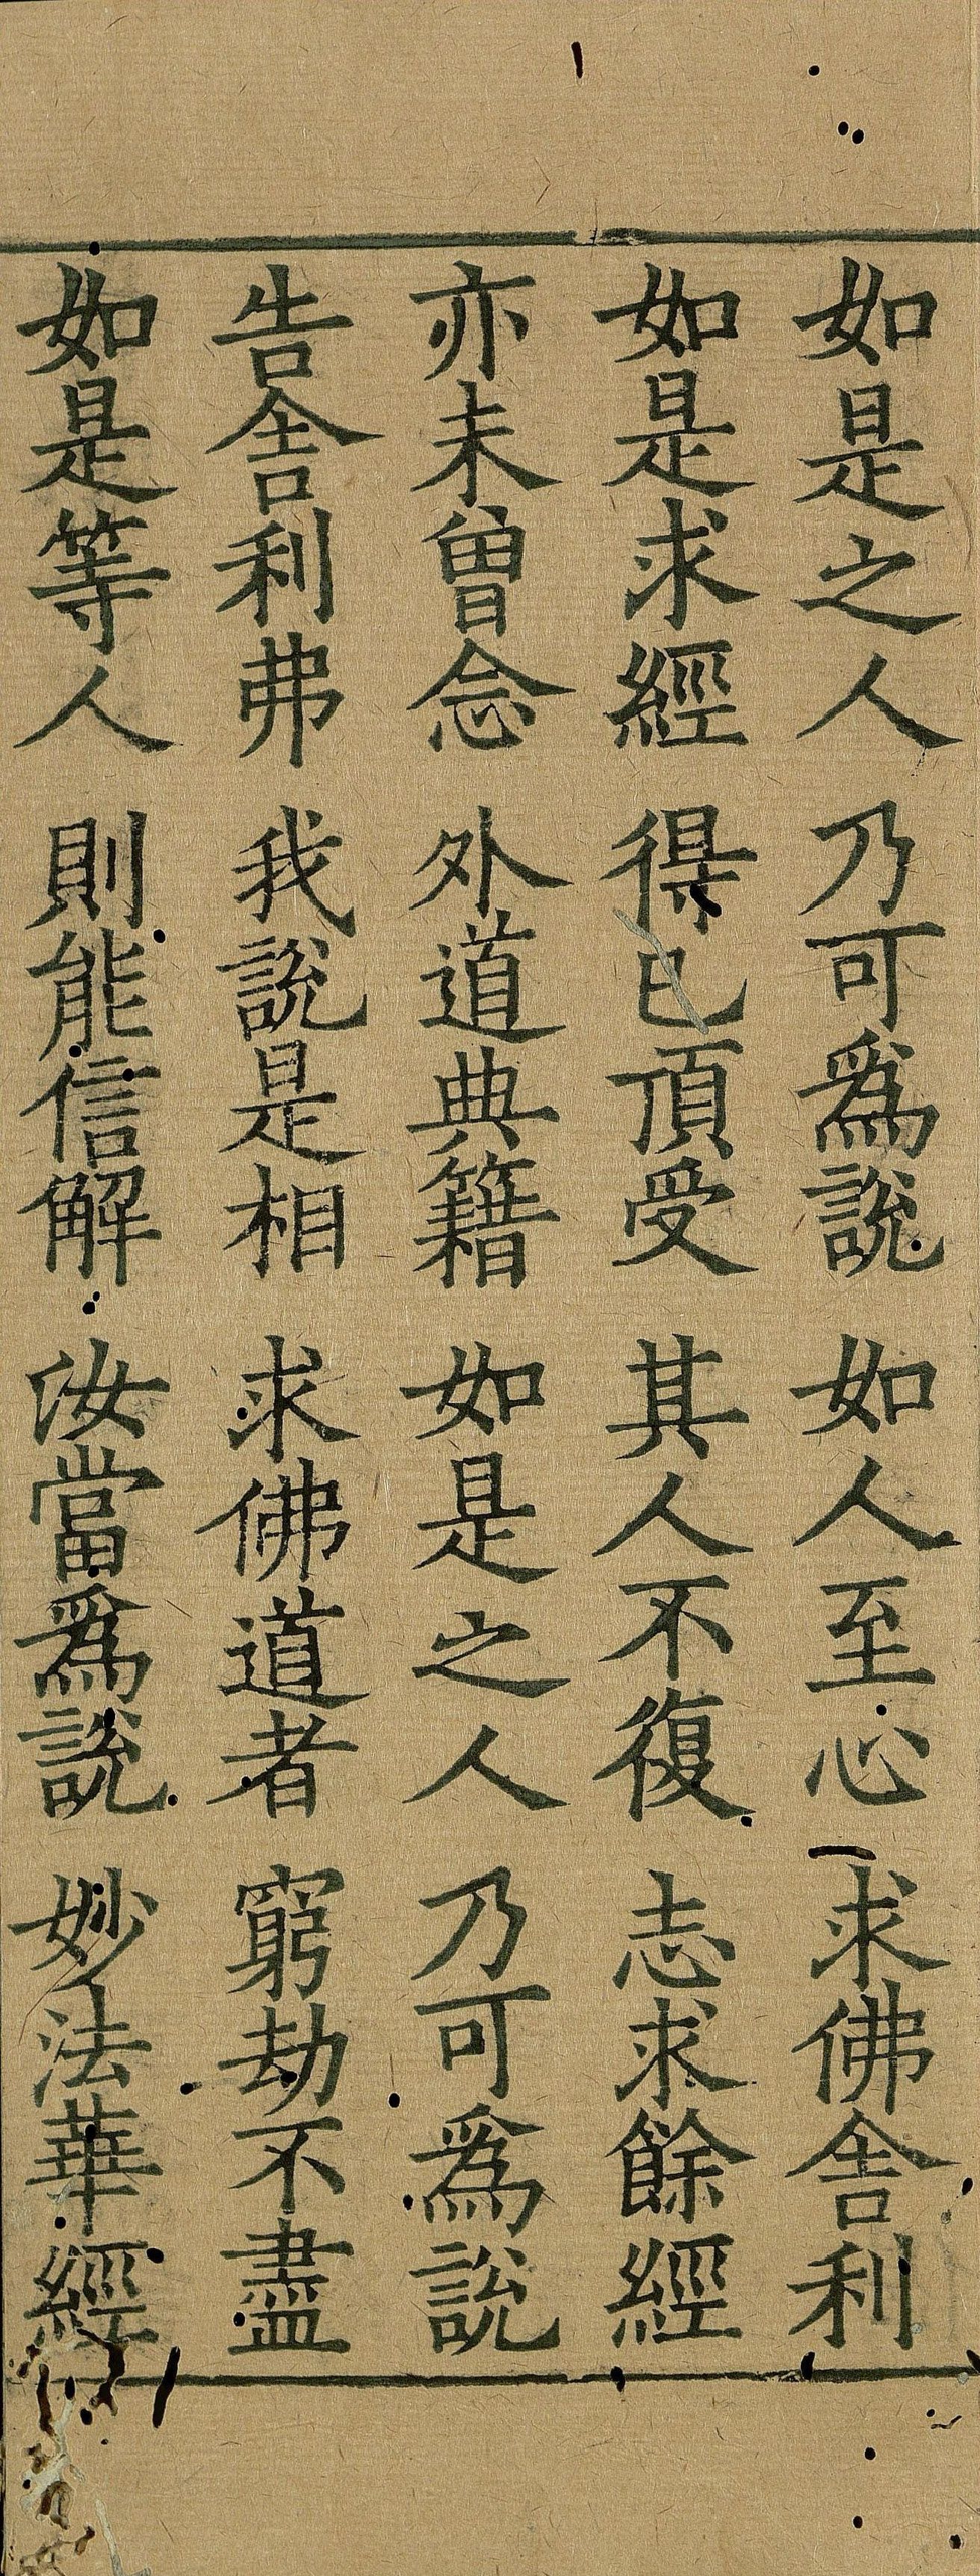 如是之人　乃可爲說　如人至心　求佛舍利
如是求經　得已頂受　其人不復　志求餘經
亦未曾念　外道典籍　如是之人　乃可爲說
告舍利弗　我說是相　求佛道者　窮劫不盡
如是等人　則能信解　汝當爲說　妙法華經